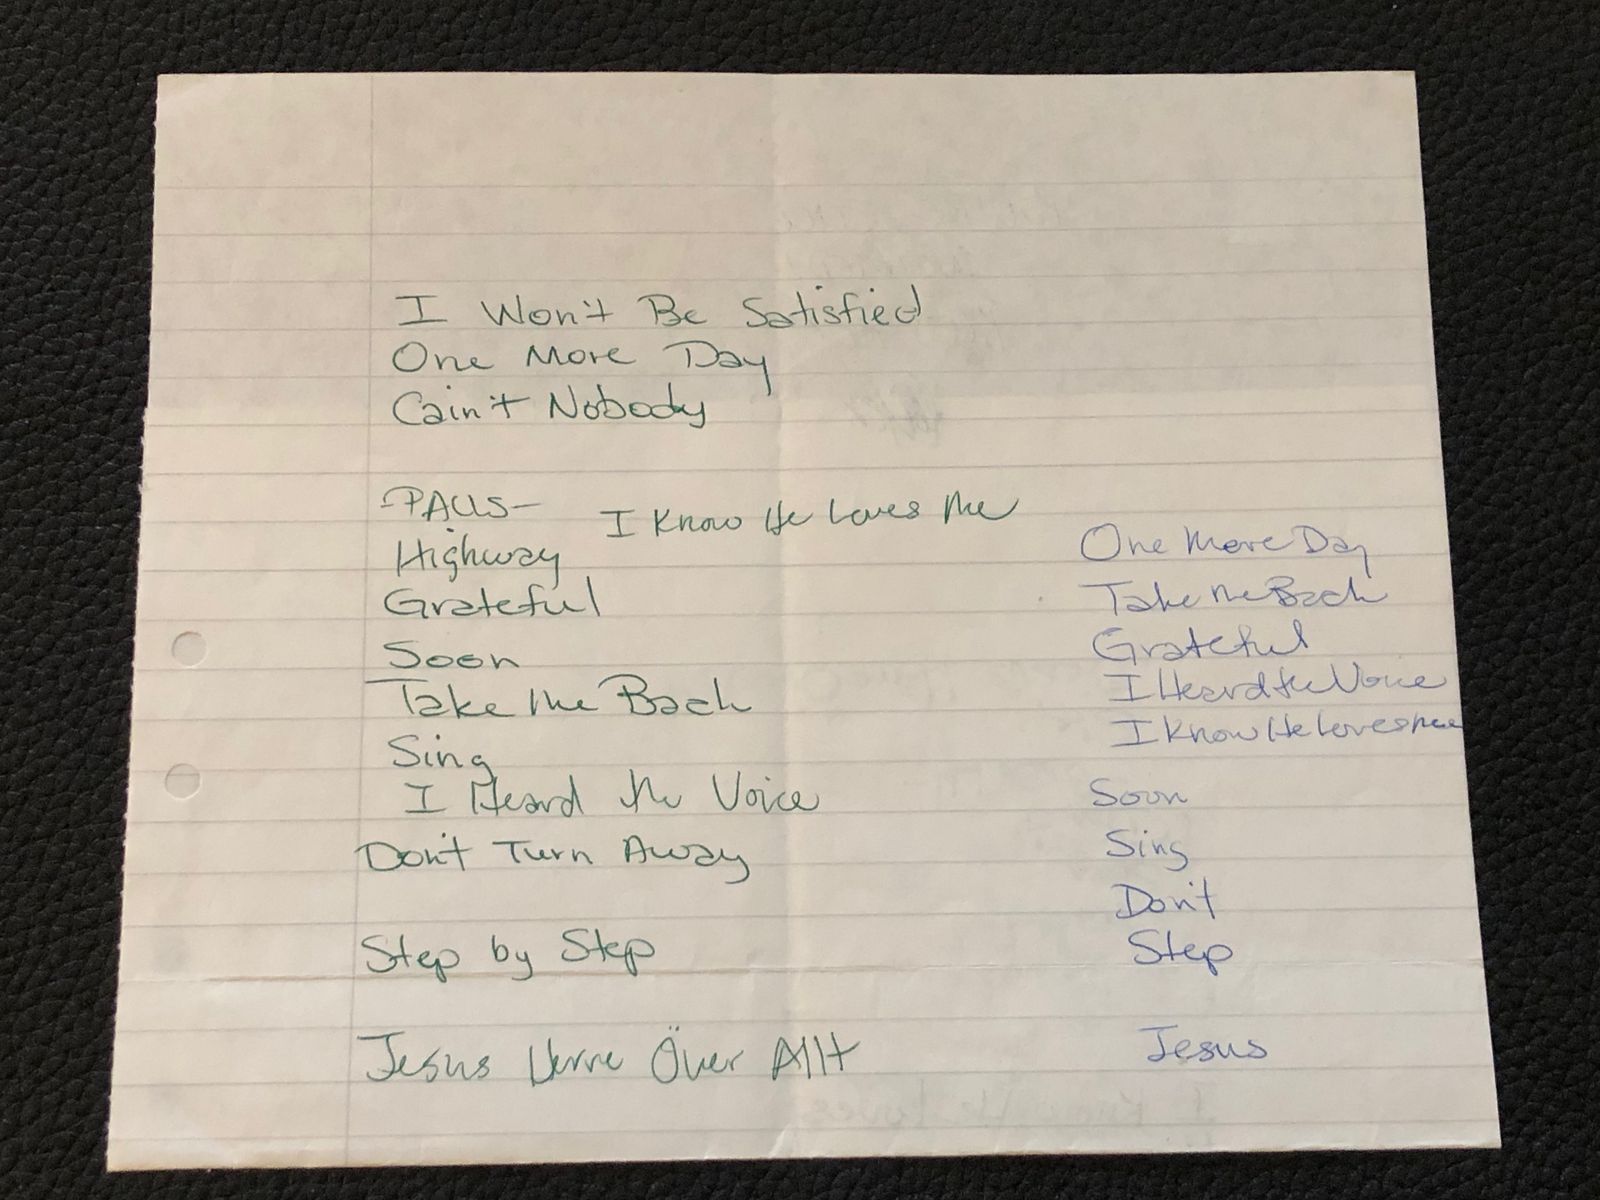 I Won't Be Satisfied
One More Day
Cain't Nobody
-PAUS-
I Know He Loves Me
Highway
Grateful
Soon
Take Me Back
Sing
I Heard the Voice
Don't Turn Away
Step by Step
Jesus Herre Över Allt
One More Day
Take Me Back
Grateful
I Heard the Voice
I Know He Loves me
Soon
Sing
Don't
Step
Jesus